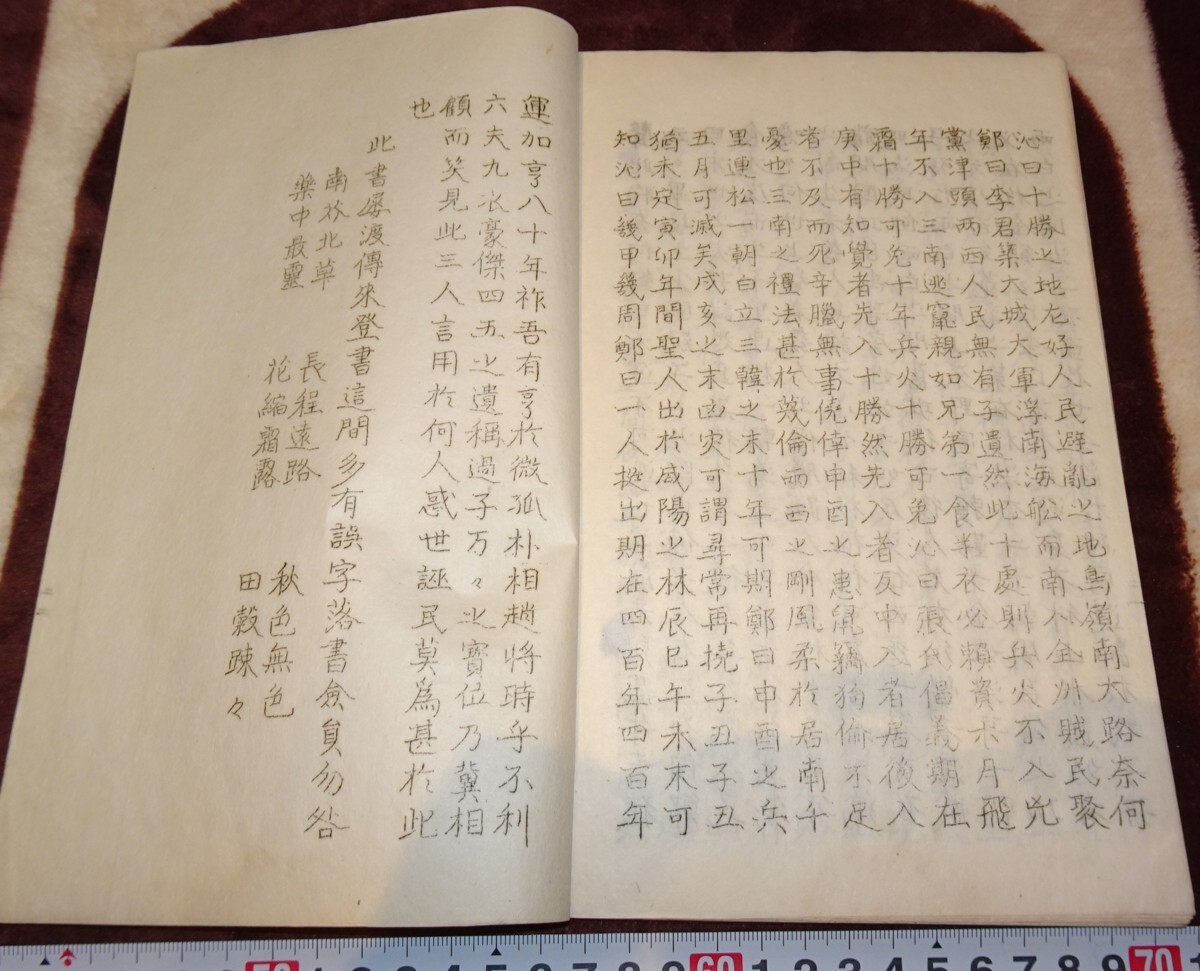 沁曰十勝之地尤好人民避亂之地鳥嶺南大路奈何
鄭曰李君築大城大軍浮南海船而南人全州賊民聚
黨津頭两西人民無有孑遺然此十處則兵火不入兇
年不入三南逃竄親如兄弟一食半衣必賴資米月飛
霜十勝可免十年兵火十勝可免沁曰張氏倡義期在
庚申有知覺者先入十勝然先入者反中入者居後入
者不及而死辛臘無事僥倖申酉之患鼠竊狗偷不足
憂也三南之禮法甚於蔑倫两西之剛風柔於居南千
里連松一朝白立三韓之末十年可期鄭曰申酉之兵
五月可滅矣戌亥之末凶灾可謂尋常再撓子丑子丑
猶未定寅卯年間聖人出於咸陽之林辰巳午未末可
知沁曰幾甲幾周鄭曰一人挺出期在四百年四百年
運加亨八十年祚吾有亨於微孤朴相趙將時乎不利
六夫九氷豪傑四五之遺稱過子万々之寶位乃冀相
顧而笑見此三人言用於何人惑世誣民莫為甚於此
也
此書屡渡傳來登書這間多有誤字落書僉員勿咎
南水北草
藥中最靈
長程遠路
花縮霜露
秋色無色
田穀踈々
50 1 2 3 4 5 6 7 8 9 60 1 2 3 4 5 6 7 8 9 70